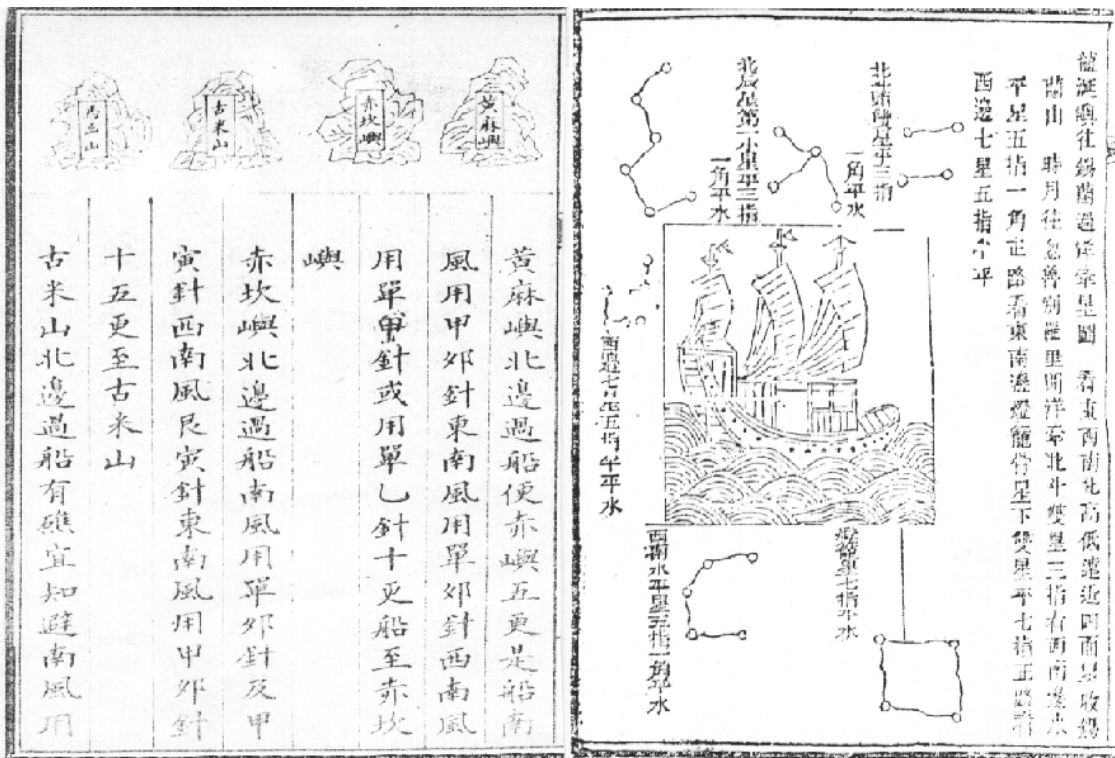 龍涎嶼往錫蘭過洋牽星圖 看東西南北高低遠近四面星收錫
蘭山 時月往忽魯別羅里開洋牽北斗雙星三指看西南邊水
平星五指一角正路看東南邊燈籠骨星下雙星平七指正路看
西邊七星五指半平
北斗頭雙星平三指
一角平水
北辰星第一小星平三指
一角平水
西邊七星五指半平水
燈籠骨七指平水
西南水平星五指一角平水
黃麻嶼
赤坎嶼
古米山
馬齒山
黃麻嶼北邊過船便赤嶼五更是船南
風用甲夘針東南風用單夘針西南風
用單甲針或用單乙針十更船至赤坎
嶼
赤坎嶼北邊過船南風用單夘針及甲
寅針西南風艮寅針東南風用甲夘針
十五更至古米山
古米山北邊過船有礁宜知避南風用